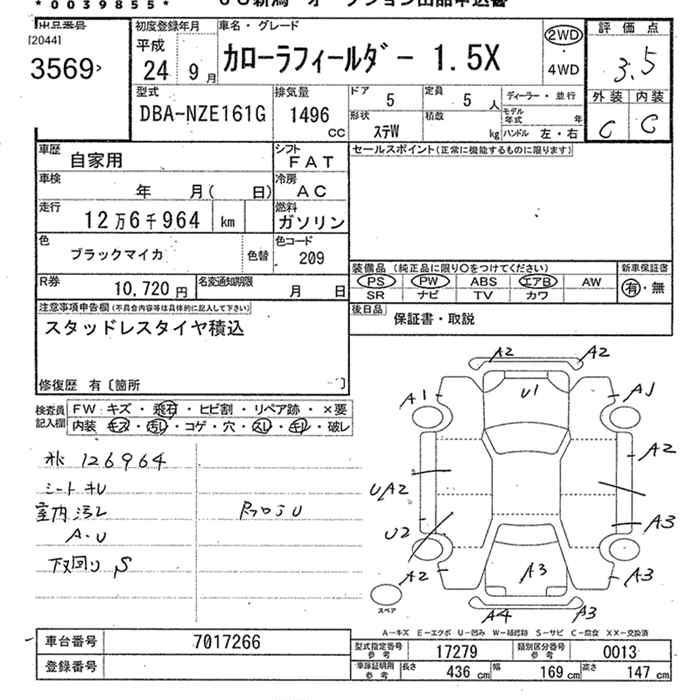 * 0 0 3 9 8 5 5 *
出品番号
[2044]
3569
初度登録年月
平成
24 9 月
車名・グレード
カローラフィールダー 1.5X
2WD
・
4WD
評価点
3.5
外装 内装
C C
型式
DBA-NZE161G
排気量
1496
CC
ドア
5
定員
5 人
ディーラー・並行
形状
ステW
積載
kg
モデル年式
年
ハンドル 左・右
車歴
自家用
シフト
FAT
セールスポイント(正常に機能するものに限ります)
車検
年 月( 日)
冷房
AC
走行
12万6千964 km
燃料
ガソリン
色
ブラックマイカ
色替
色コード
209
装備品 (純正品に限り○をつけてください)
新車保証書
PS PW ABS エアB AW
有・無
SR ナビ TV カワ
R券
10,720 円
名変通知期限
月 日
後日品
保証書・取説
注意事項申告欄(不具合内容等は具体的に記入して下さい)
スタッドレスタイヤ積込
修復歴 有〔箇所 〕
検査員記入欄
FW: キズ・飛石・ヒビ割・リペア跡・×要
内装 キズ・汚れ・コゲ・穴・スレ・キレ・破レ
126964
室内汚レ
A・U
下回り S
A2 A2
A1 U1 A1
A2
UA2
U2 A3
A2 A3 A3
A4 A3
スペア
A―キズ E―エクボ U―凹み W―補修跡 S―サビ C―腐食 XX―交換済
車台番号 7017266
登録番号
型式指定番号参考 17279
類別区分番号参考 0013
車庫証明用参考 長さ 436 cm 幅 169 cm 高さ 147 cm